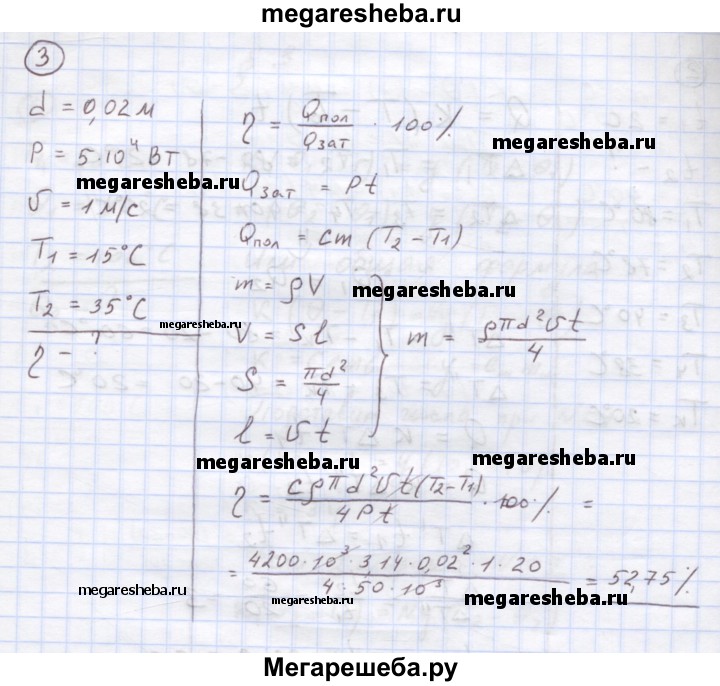 megaresheba.ru
3
d = 0,02 м
P = 5·10⁴ Вт
υ = 1 м/с
T₁ = 15°C
T₂ = 35°C
η - ?
η = Qпол / Qзат · 100%
Qзат = Pt
Qпол = cm (T₂ - T₁)
m = ρV
V = Sl
S = πd² / 4
l = υt
m = ρπd²υt / 4
η = cρπd²υt(T₂-T₁) / 4Pt · 100% =
= 4200·10³·3,14·0,02²·1·20 / 4·50·10³ = 52,75%
megaresheba.ru
megaresheba.ru
megaresheba.ru
megaresheba.ru
megaresheba.ru
megaresheba.ru
megaresheba.ru
megaresheba.ru
megaresheba.ru
Мегарешеба.ру